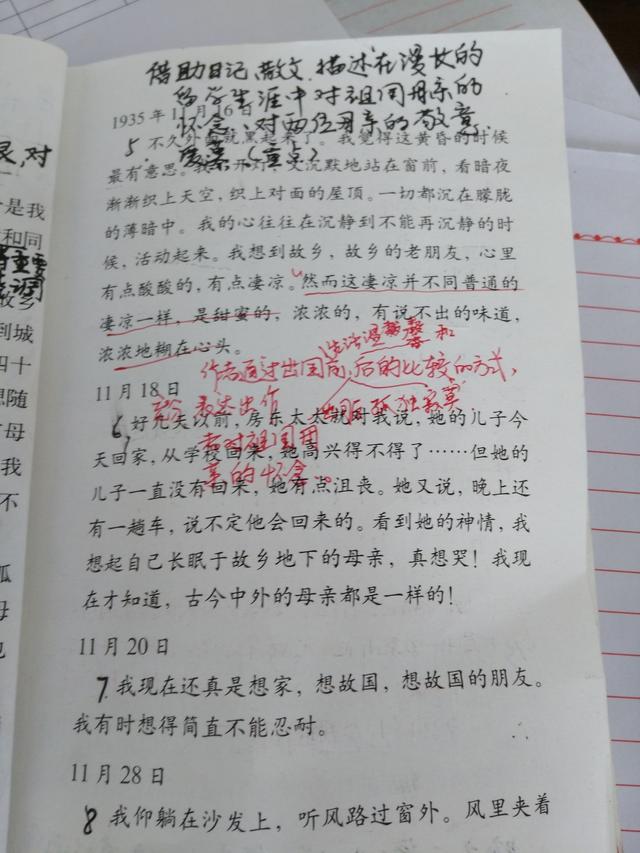 借助日记、散文,描述在漫长的
留学生涯中对祖国母亲的
怀念,对两位母亲的敬意、
爱慕。(重点)
1935年11月16日
5 不久外面就黑起来了。我觉得这黄昏的时候
最有意思。我不开灯,又沉默地站在窗前,看暗夜
渐渐织上天空,织上对面的屋顶。一切都沉在朦胧
的薄暗中。我的心往往在沉静到不能再沉静的时
候,活动起来。我想到故乡,故乡的老朋友,心里
有点酸酸的,有点凄凉。然而这凄凉并不同普通的
凄凉一样,是甜蜜的,浓浓的,有说不出的味道,
浓浓地糊在心头。
生活温馨和
作者通过出国前,后的比较的方式,
11月18日
表达出作 出国后孤独寂寞
6 好几天以前,房东太太就对我说,她的儿子今
者对祖国母
天回家,从学校回来,她高兴得不得了……但她的
亲的怀念。
儿子一直没有回来,她有点沮丧。她又说,晚上还
有一趟车,说不定他会回来的。看到她的神情,我
想起自己长眠于故乡地下的母亲,真想哭!我现
在才知道,古今中外的母亲都是一样的!
11月20日
7 我现在还真是想家,想故国,想故国的朋友。
我有时想得简直不能忍耐。
11月28日
8 我仰躺在沙发上,听风路过窗外。风里夹着
艮,对
个是我
和同
重要
到城
四十
想随
母
我
不
孤
母